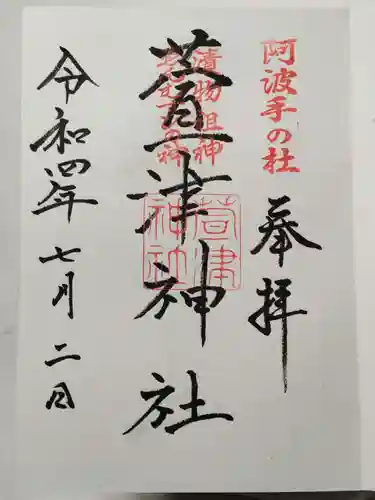 阿波手の杜
奉拝
漬物祖神
萱津神社
萱津
神社
令和四年七月二日